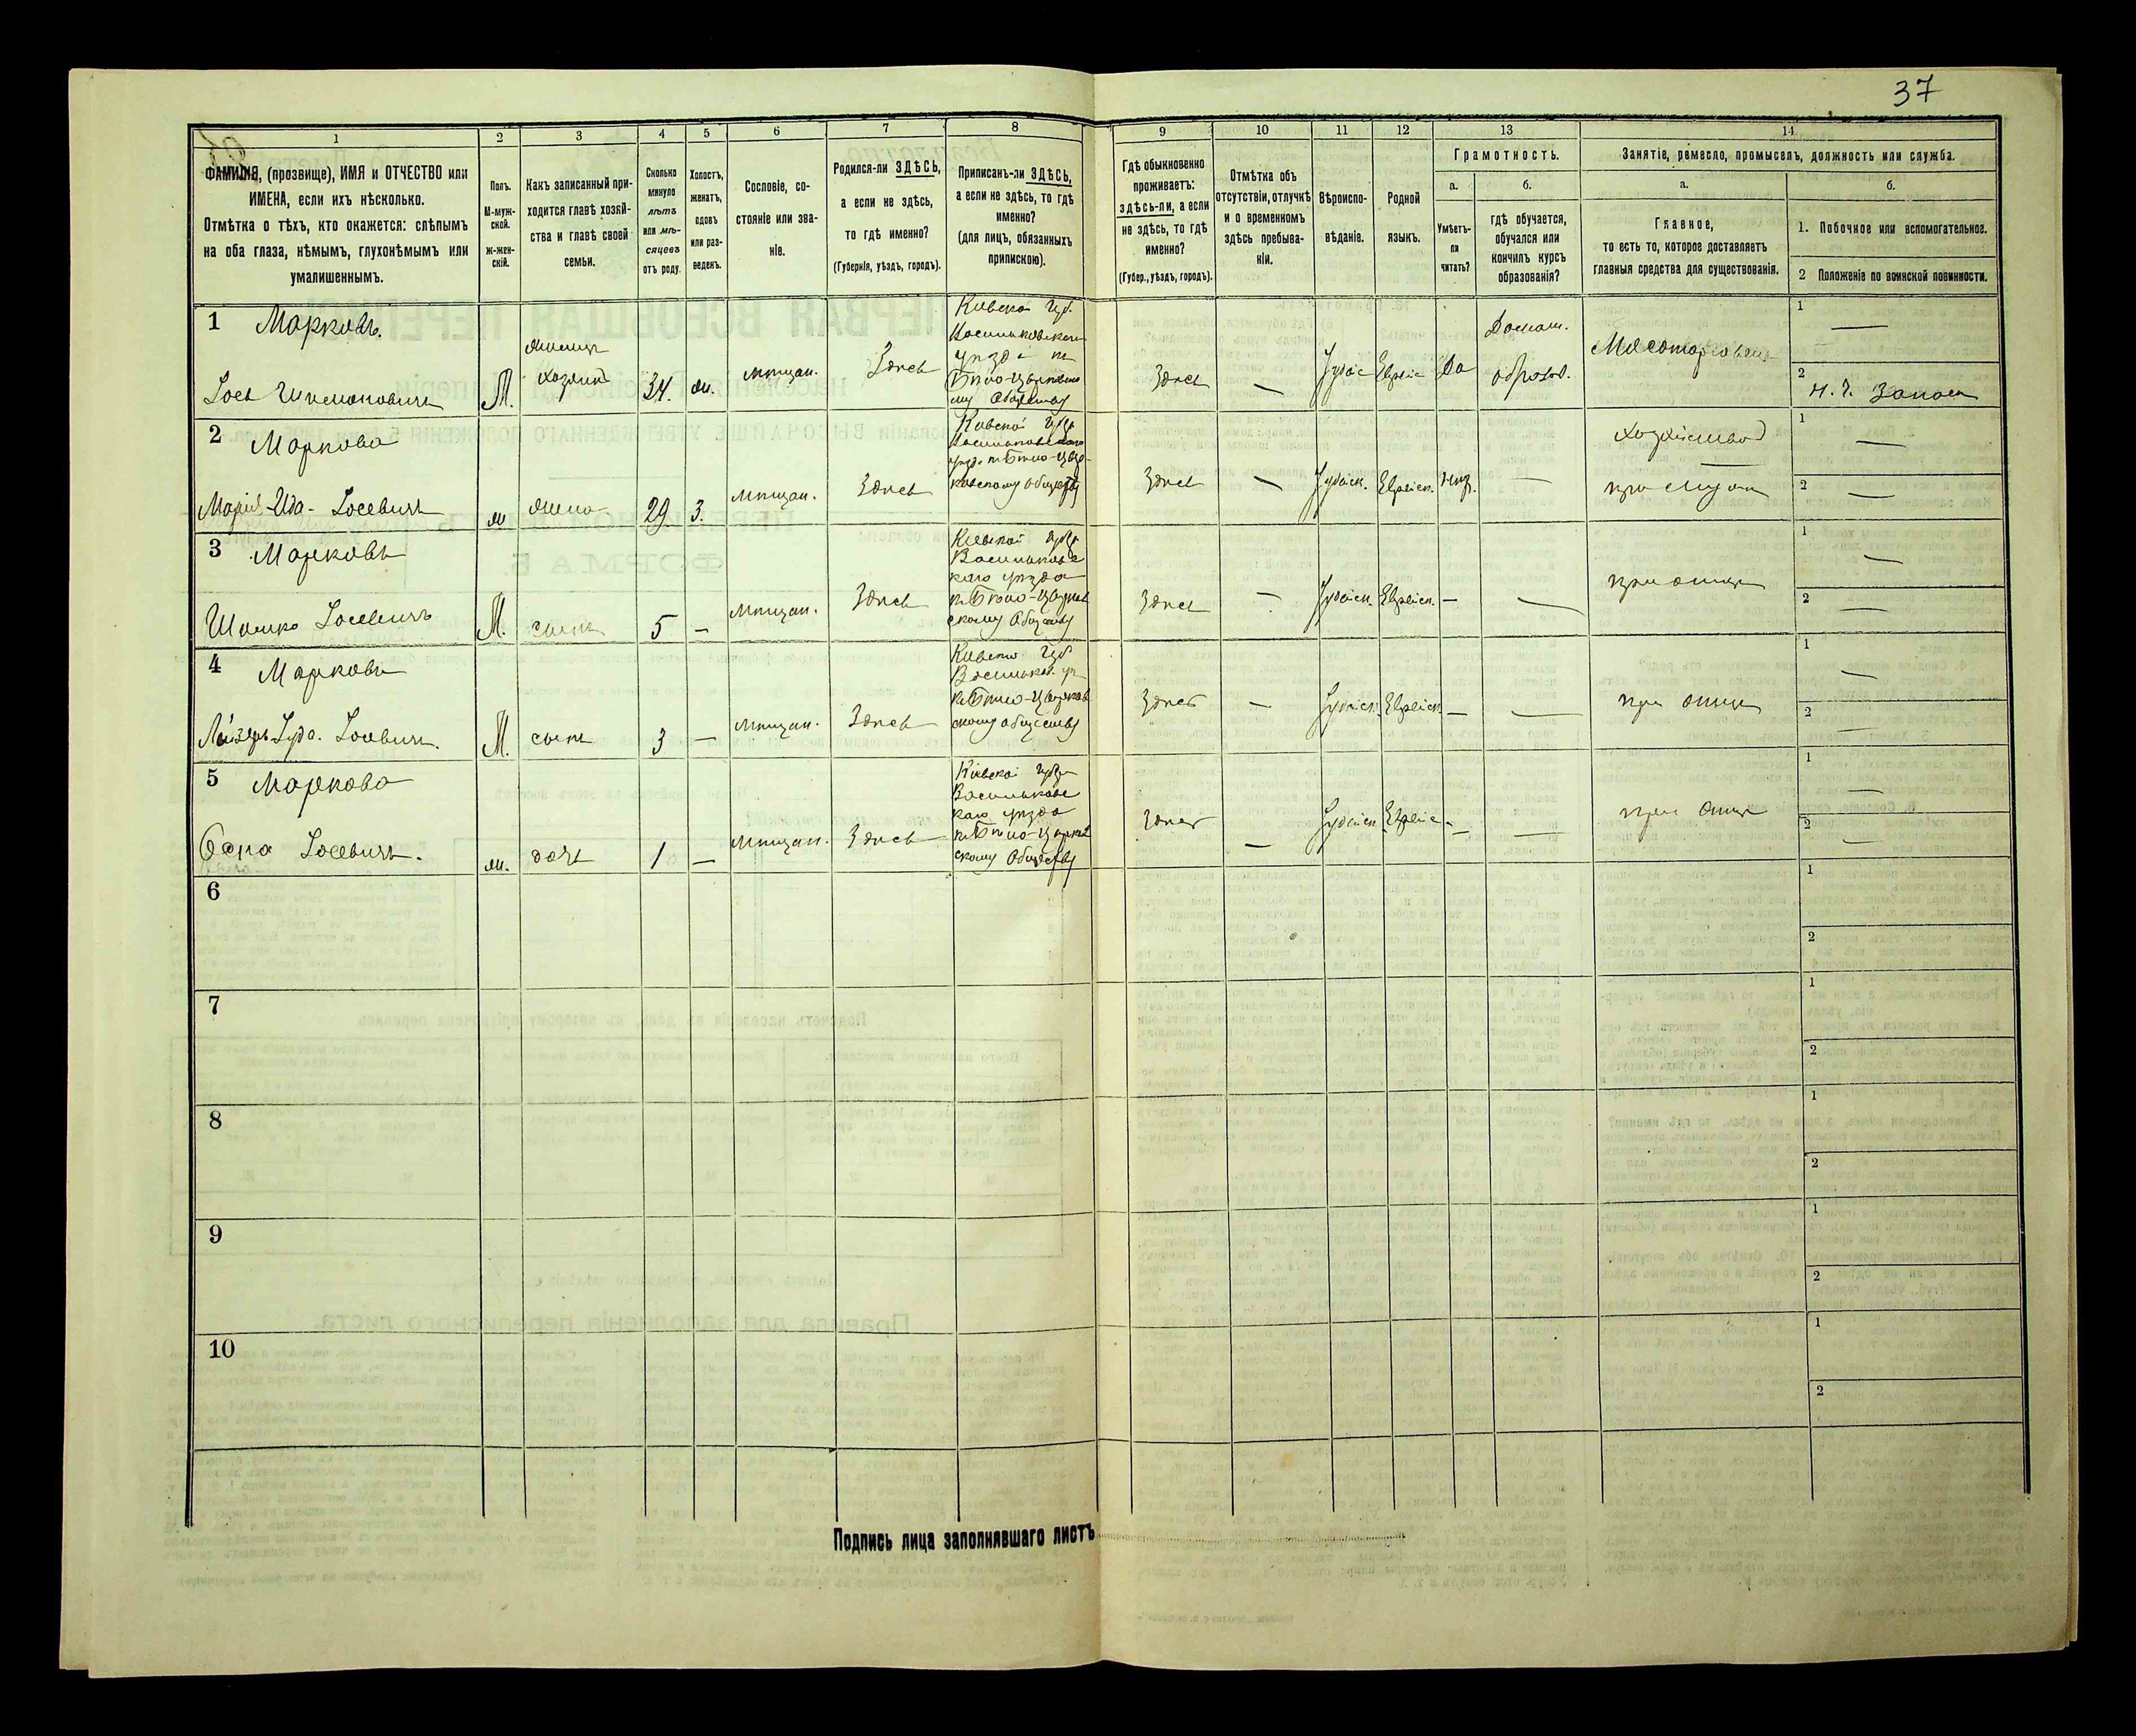 37
1 2 3 4 5 6 7 8 9 10 11 12 13 14
ФАМИЛІЯ, (прозвище), ИМЯ и ОТЧЕСТВО или
ИМЕНА, если ихъ нѣсколько.
Отмѣтка о тѣхъ, кто окажется: слѣпымъ
на оба глаза, нѣмымъ, глухонѣмымъ или
умалишеннымъ.
Полъ.
М-муж-
ской.
ж-жен-
скій.
Какъ записанный при-
ходится главѣ хозяй-
ства и главѣ своей
семьи.
Сколько
минуло
лѣтъ
или мѣ-
сяцевъ
отъ роду.
Холостъ,
женатъ,
вдовъ
или раз-
веденъ.
Сословіе, со-
стояніе или зва-
ніе.
Родился-ли ЗДѢСЬ,
а если не здѣсь,
то гдѣ именно?
(Губернія, уѣздъ, городъ).
Приписанъ-ли ЗДѢСЬ,
а если не здѣсь, то гдѣ
именно?
(для лицъ, обязанныхъ
припискою).
Гдѣ обыкновенно
проживаетъ:
здѣсь-ли, а если
не здѣсь, то гдѣ
именно?
(Губер., уѣздъ, городъ).
Отмѣтка объ
отсутствіи, отлучкѣ
и о временномъ
здѣсь пребыва-
ніи.
Вѣроиспо-
вѣданіе.
Родной
языкъ.
Грамотность.
а.
Умѣетъ-
ли
читать?
б.
гдѣ обучается,
обучался или
кончилъ курсъ
образованія?
Занятіе, ремесло, промыселъ, должность или служба.
а.
Главное,
то есть то, которое доставляетъ
главныя средства для существованія.
б.
1. Побочное или вспомогательное.
2 Положеніе по воинской повинности.
1 Марковъ.
Іось
М.
хозяинъ
34.
мѣщан.
Здѣсь
Кіевской Губ.
Здѣсь
—
Іудіс
Еврейс
Да
Домаш.
образов.
Мясоторговецъ
1 —
2 Н. Ч. Запаса
2 Маркова
Марія-Ида- Іосевичъ
ж
жена
29
З.
мѣщан.
Здѣсь
Кіевской Губр
Здѣсь
—
Іудейск.
Еврейск.
—
хозяйство
—
1 —
2 —
3 Марковъ
Шлемко Іосевичъ
М.
сынъ
5
—
мѣщан.
Здѣсь
Кіевской губр
Васильковс
каго уѣзда
къ Бѣло-Церков
скому Обществу
Здѣсь
—
Іудейск.
Еврейск.
—
—
при отцѣ
1 —
2 —
4 Марковъ
Лейзеръ-Іуда. Іосевичъ.
М.
сынъ
3
—
мѣщан.
Здѣсь
Губ
къ Бѣло-Церков
скому обществу
Здѣсь
—
Іудейск.
Еврейск.
—
—
при отцѣ
1 —
2 —
5 Маркова
Іосевичъ.
ж.
дочь
1
—
мѣщан.
Здѣсь
Кіевской губр
Васильковс
каго уѣзда
къ Бѣло-Церков
скому Обществу
Здѣсь
—
Іудейск
Еврейс
—
—
при отцѣ
1 —
2 —
6
1
2
7
1
2
8
1
2
9
1
2
10
1
2
Подпись лица заполнявшаго листъ